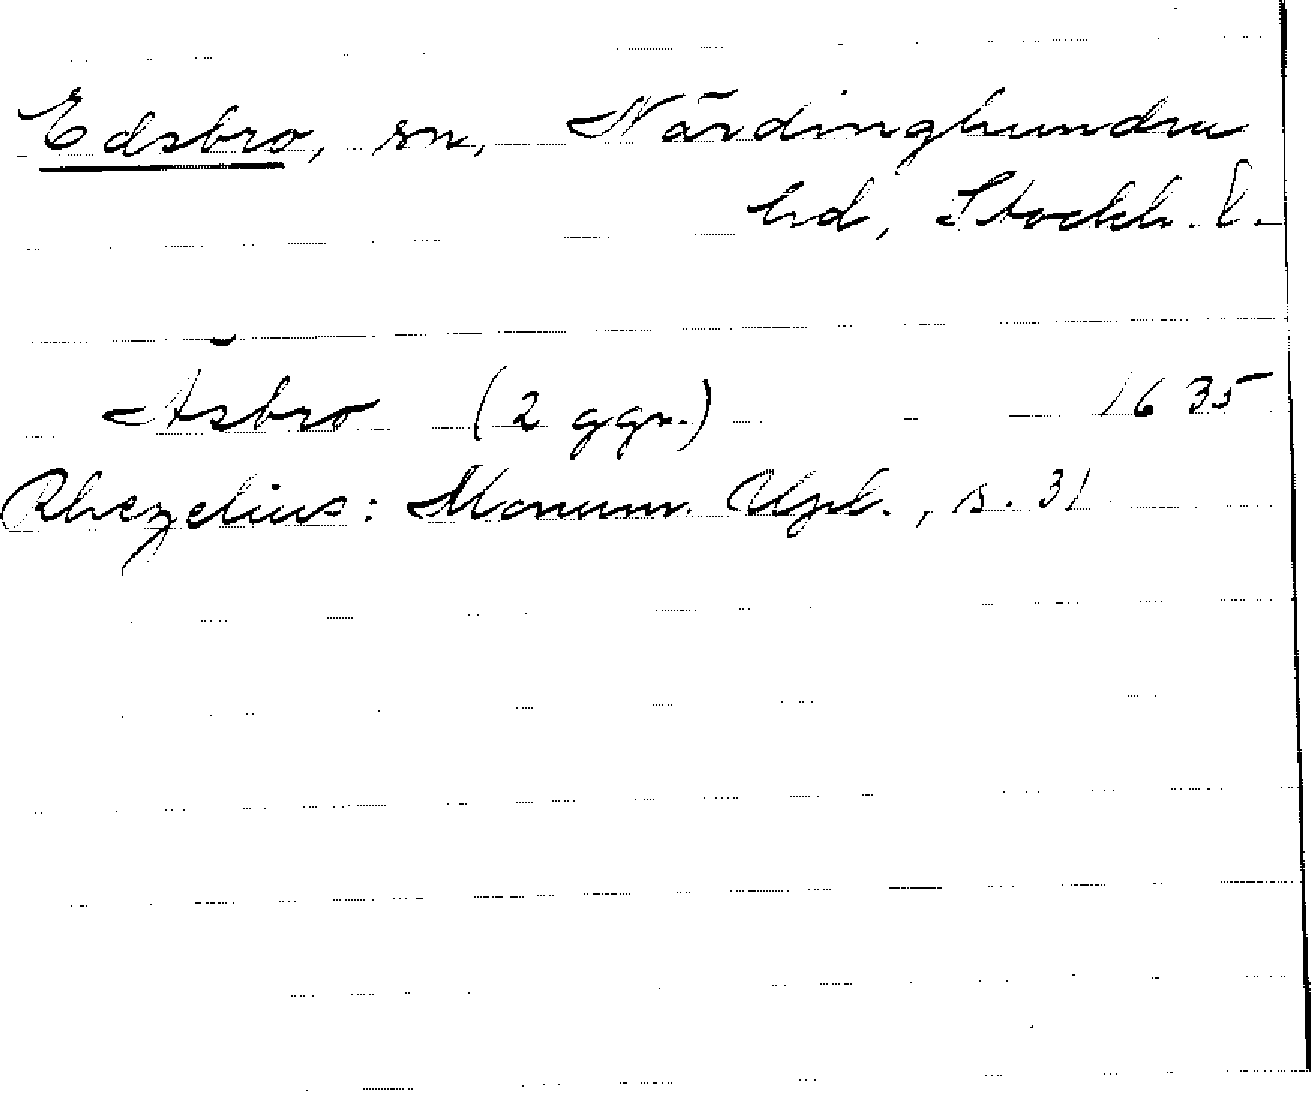 Edsbro, sn, Närdinghundra
hd, Stockh. l.
Äsbro (2 ggr.) 1635
Rhezelius: Monum. Upl., s. 31